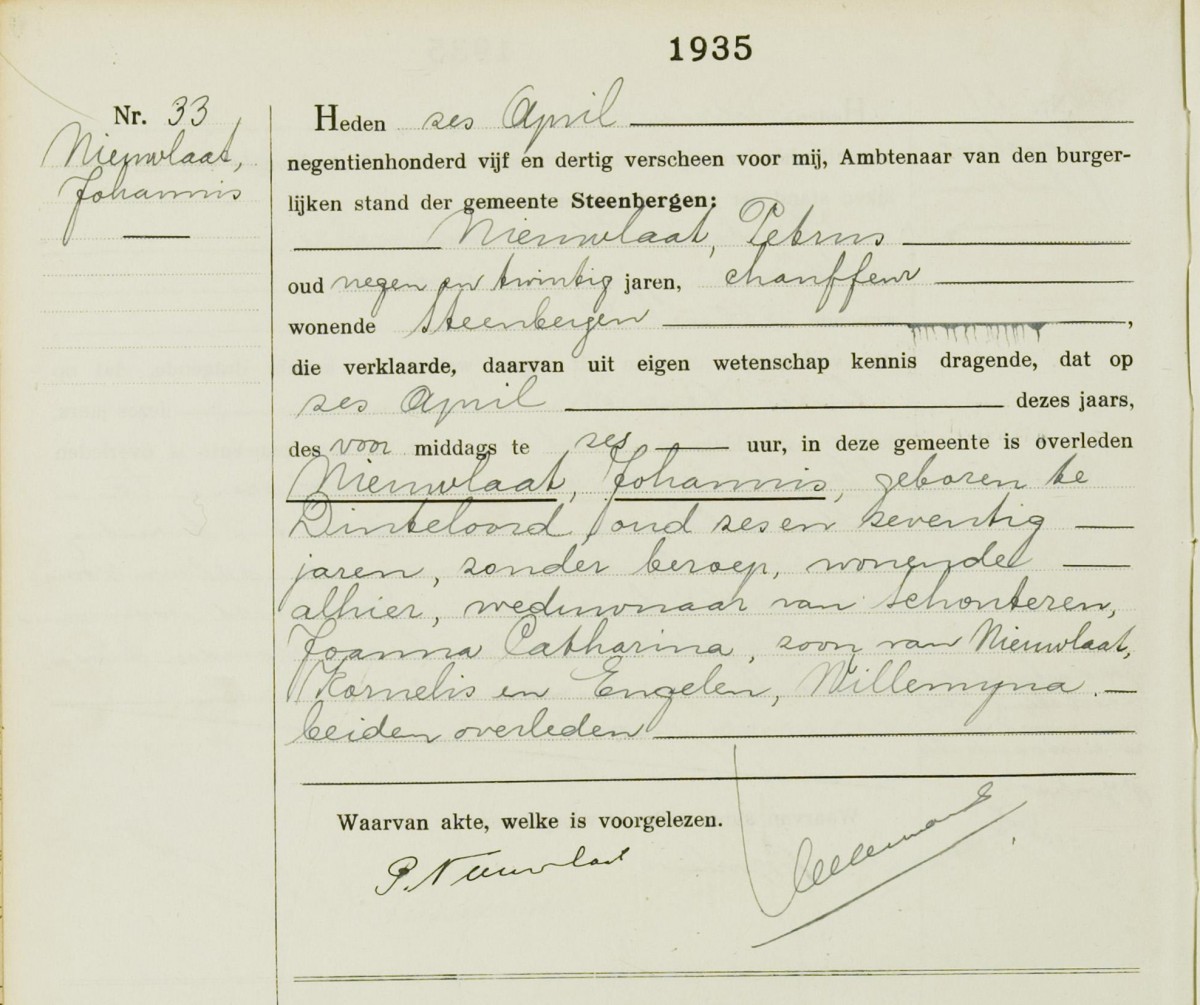 1935
Nr. 33
Nieuwlaat,
Johannis
Heden zes April
negentienhonderd vijf en dertig verscheen voor mij, Ambtenaar van den burger-
lijken stand der gemeente Steenbergen:
Nieuwlaat, Petrus
oud negen en twintig jaren, chauffeur
wonende Steenbergen ,
die verklaarde, daarvan uit eigen wetenschap kennis dragende, dat op
zes April dezes jaars,
des voor middags te zes uur, in deze gemeente is overleden
Nieuwlaat, Johannis, geboren te
Dinteloord, oud zes en zeventig
jaren, zonder beroep, wonende
alhier, weduwnaar van Schouteren,
Joanna Catharina, zoon van Nieuwlaat,
Kornelis en Engelen, Willemyna.
beiden overleden
Waarvan akte, welke is voorgelezen.
P. Nieuwlaat